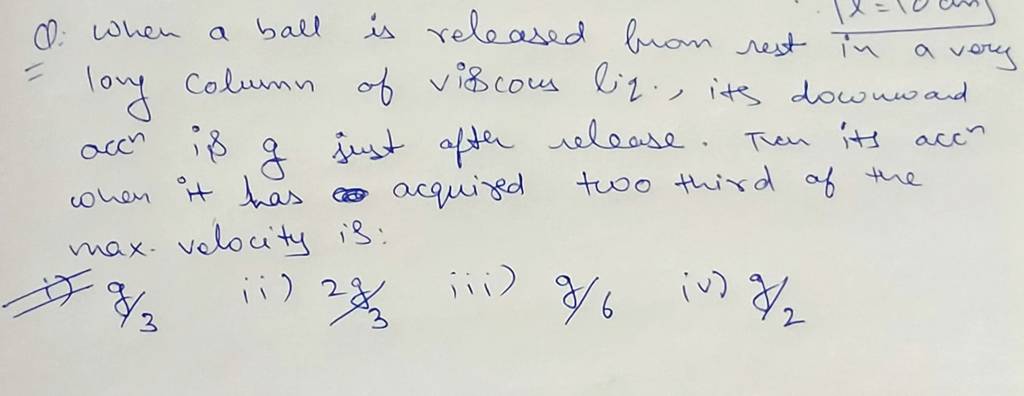 l = 10 cm
Q: When a ball is released from rest in a very
long column of viscous liq., its downward
accⁿ is g just after release. Then its accⁿ
when it has acquired two third of the
max. velocity is:
i) g/3 ii) 2g/3 iii) g/6 iv) g/2